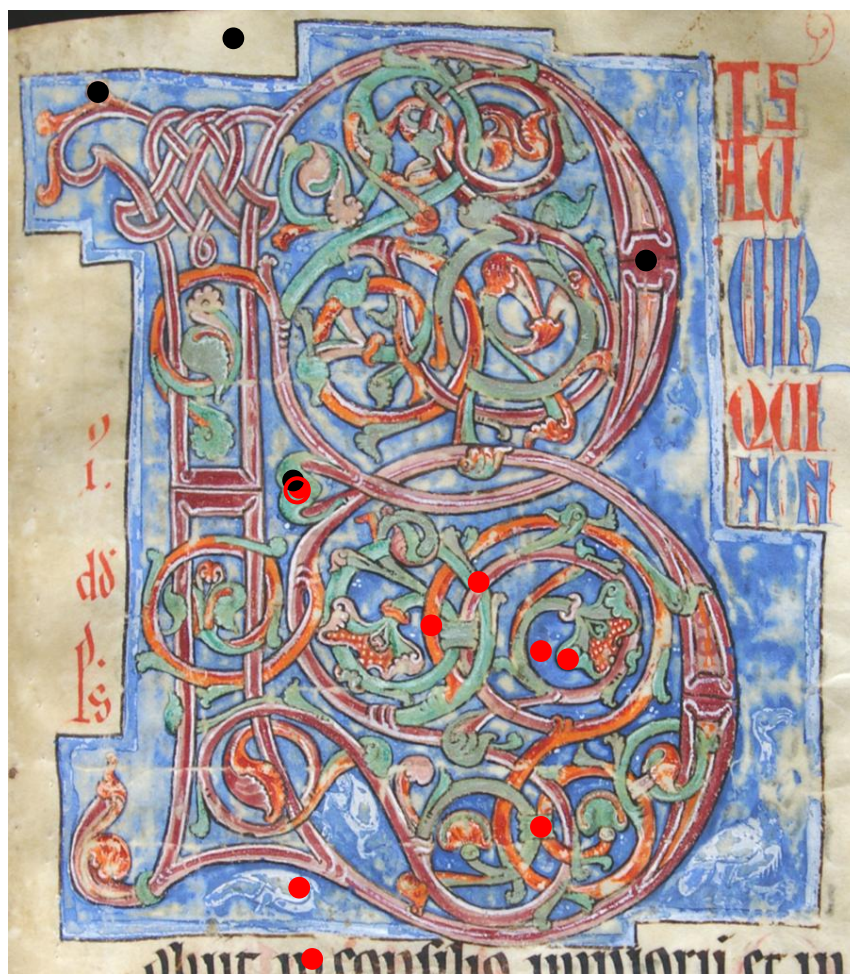 B
EATUS
UIR
QUI
NON
abiit in consilio impiorū et in